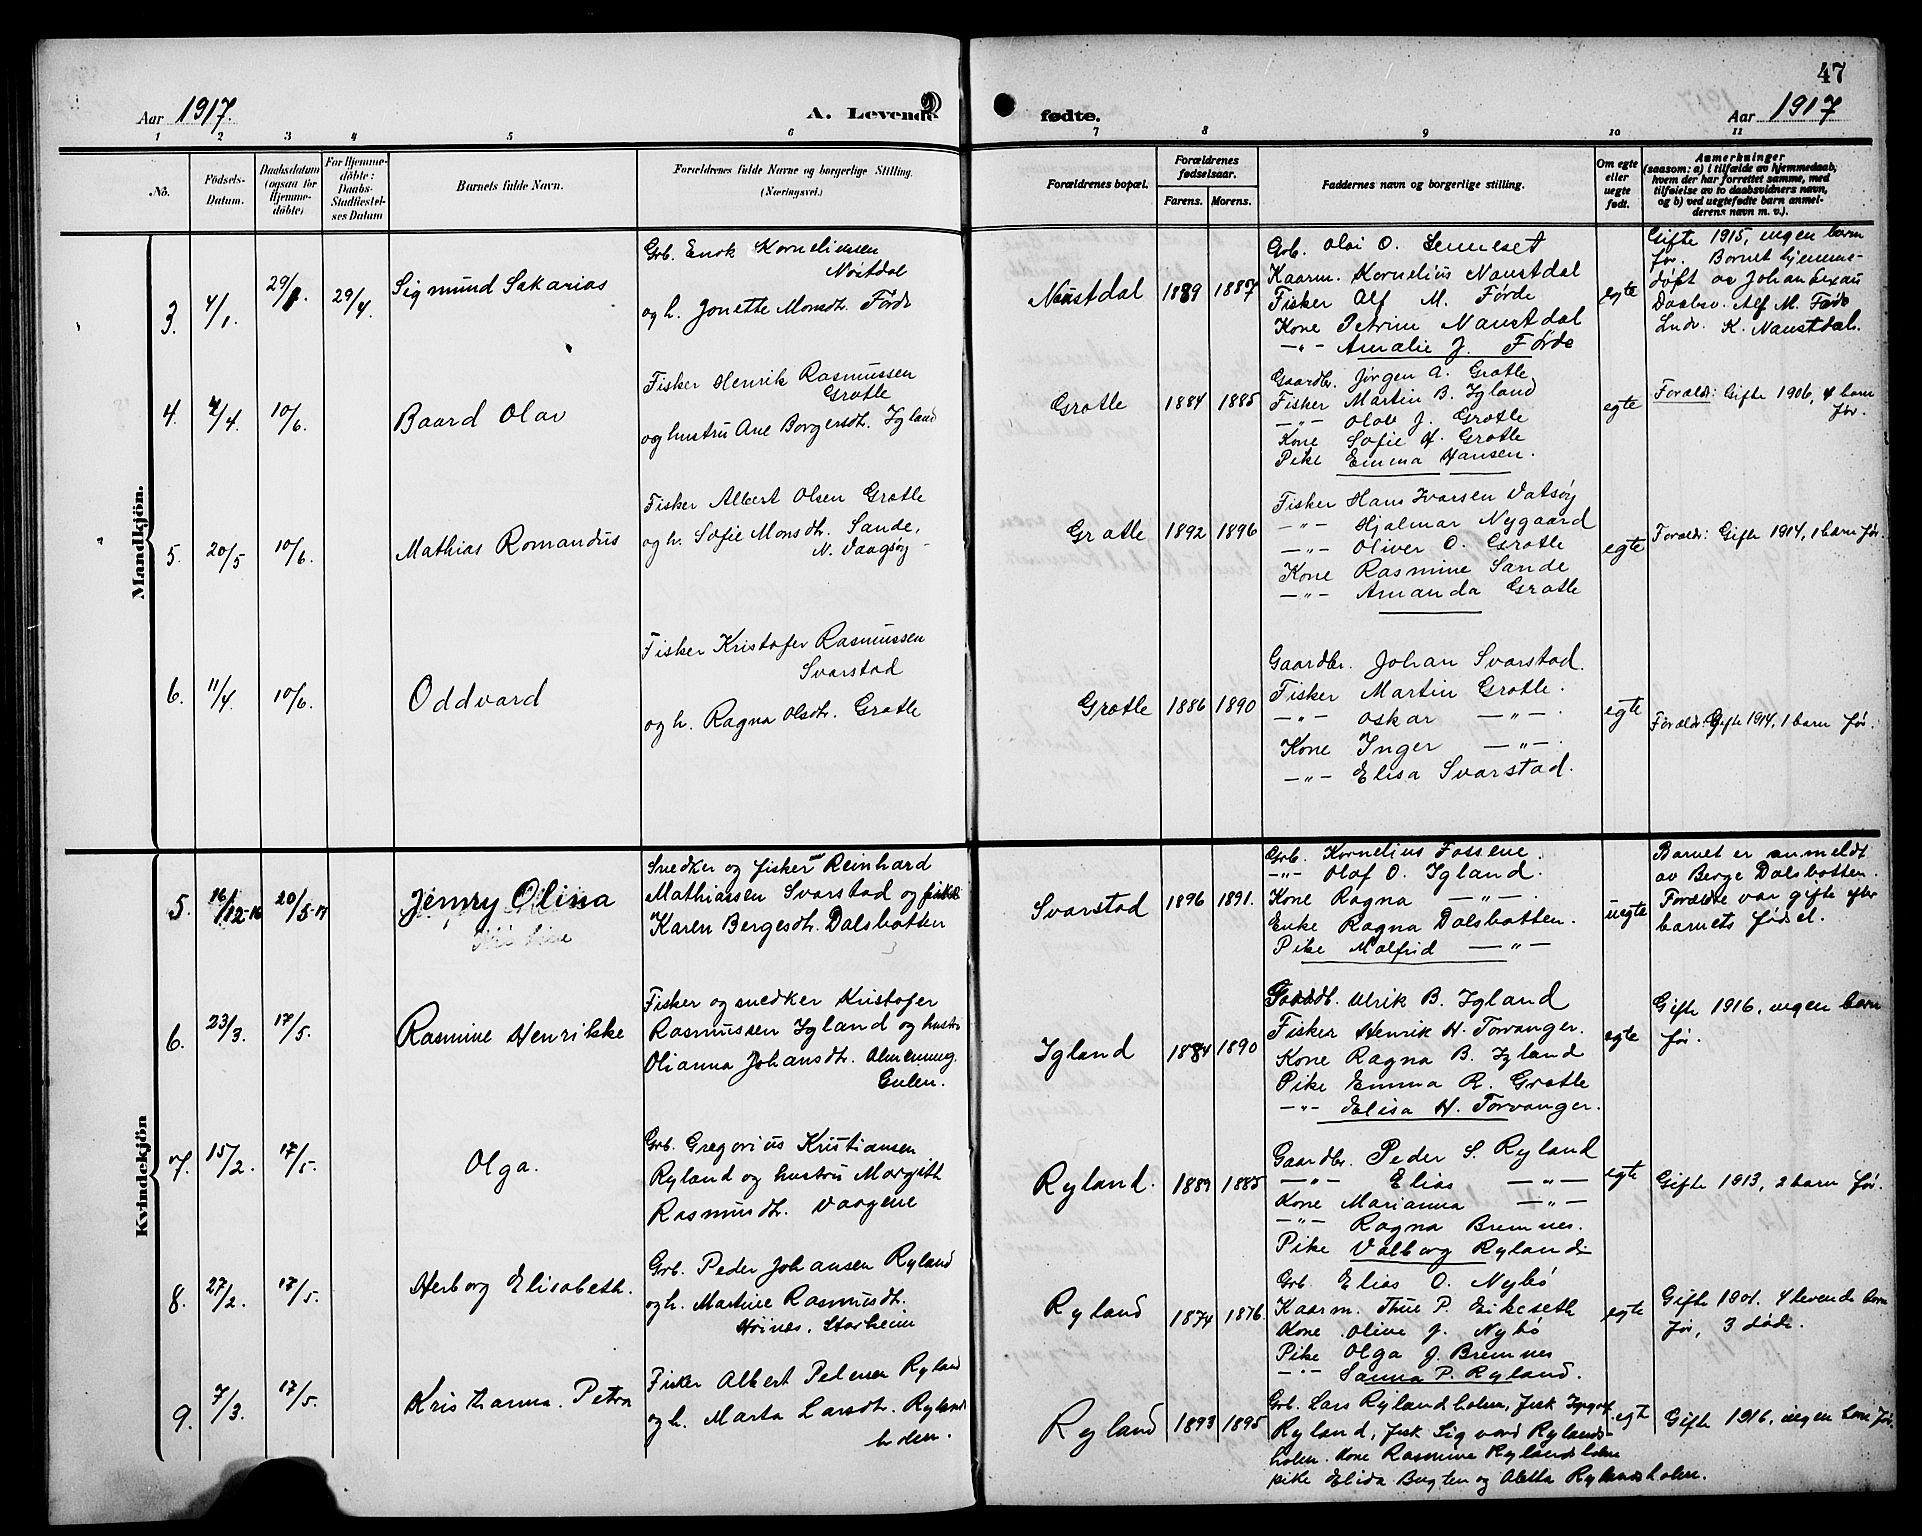 47
Aar 1917.
A. Levende
fødte.
Aar 1917
1 2 3 4 5 6 7 8 9 10 11
No.
Fødsels-Datum.
Daabsdatum (ogsaa for Hjemme-døbte)
For Hjemme-döbte: Daabs-Stadfæstel-ses Datum
Barnets fulde Navn.
Forældrenes fulde Navne og borgerlige Stilling. (Næringsvei.)
Forældrenes bopæl.
Forældrenes fødselsaar.
Farens. Morens.
Faddernes navn og borgerlige stilling.
Om egte eller uegte født.
Anmerkninger (saasom: a) i tilfælde av hjemmedaab, hvem der har forrettet samme, med tilføielse av to daabsvidners navn, og b) ved uegtefødte barn anmel-derens navn m. v.).
Mandkjön.
3. 4/1. 29/1. 29/4. Sigmund Sakarias
Grb. Enok Korneliussen
Nöstdal
og h. Jonette Monsdt. Förde
Naustdal 1889 1887
Grb. Olai O. Senneset
Kaarm. Kornelius Naustdal
Fisker Alf M. Förde
Kone Petrine Naustdal
—"— Amalie J. Førde
egte
Gifte 1915, ingen barn
før. Barnet hjemme-
døpt av Johan
Daabsv. Alf M. Førde
K. Naustdal.
4. 4/4. 10/6. Baard Olav
Fisker Henrik Rasmussen
Grotle
og hustru Ane Borgersdt. Igland
Grotle 1884 1885
Gaardbr. Jørgen A. Grotle
Fisker Martin B. Igland
—"— Olav J. Grotle
Kone Sofie H. Grotle
Pike Emma Hansen.
egte
Foræld: Gifte 1906, 4 barn
før.
5. 20/5 10/6. Mathias Romandus
Fisker Albert Olsen Grotle
og h. Sofie Monsdt. Sande,
N. Vaagsøy
Grotle 1892 1896
Fisker Hans Ivarsen Vatsöy
—"— Hjalmar Nygaard
—"— Oliver O. Grotle
Kone Rasmine Sande
—"— Amanda Grotle
egte
Foræld: Gifte 1914, 1 barn før.
6. 11/4. 10/6. Oddvard
Fisker Kristofer Rasmussen
Svarstad
og h. Ragna Olsdt. Grotle
Grotle 1886 1890
Gaardbr. Johan Svarstad.
Fisker Martin Grotle.
—"— Oskar —"—.
Kone Inger —"—.
—"— Elisa Svarstad.
egte
Foræld: Gifte 1914, 1 barn før.
Kvindekjön
5. 16/12-16 20/5-17 Jenny Olina
Snedker og fisker Reinhard
Mathiassen Svarstad og
Karen Bergesdt. Dalsbotten
Svarstad 1896 1891.
Grb. Kornelius Fossene.
—"— Olaf O. Igland.
Kone Ragna —"—.
Enke Ragna Dalsbotten.
Pike Malfrid —"—
uegte
Barnet er anmeldt
av Berge Dalsbotten.
Forældre var gifte efter
barnets fødsel.
6. 23/3. 17/5. Rasmine Henrikke
Fisker og snedker Kristofer
Rasmussen Igland og hustr
Olianna Johansdt. Almenning
Gulen.
Igland 1884 1890
Gaardb. Ulrik B. Igland
Fisker Henrik H. Torvanger.
Kone Ragna B. Igland
Pike Emma R. Grotle
—"— Elisa H. Torvanger.
egte
Gifte 1916, ingen barn
før.
7. 15/2. 17/5. Olga.
Grb. Gregorius Kristiansen
Ryland og hustru Margith
Rasmusdt. Vaagene
Ryland. 1889 1885
Gaardbr. Peder S. Ryland
—"— Elias —"—
Kone Marianna —"—
—"— Ragna Bremnes.
Pike Valborg Ryland
egte
Gifte 1913, 2 barn før.
8. 27/2. 17/5. Herborg Elisabeth.
Grb. Peder Johansen Ryland
og h. Martine Rasmusdt.
Höines, Storheim
Ryland 1874 1876.
Grb. Elias O. Nybö
Kaarm. Thue P. Eikeseth
Kone Olive J. Nybö
Pike Olga J. Bremnes
—"— Sanna P. Ryland.
egte
Gifte 1901. 4 levende barn
før, 3 døde.
9. 7/3. 17/5. Kristianna Petra
Fisker Albert Pedersen Ryland
og h. Marta Larsdt. Rylands
holen.
Ryland 1893 1895
Grb. Lars Rylandsholen, fisk Ingolf
Ryland, fisk. Sigvard Rylands-
holen. Kone Rasmine Rylandsholen
pike Elida Bugten og Aletta Rylandsholen.
egte
Gifte 1916, ingen barn før.